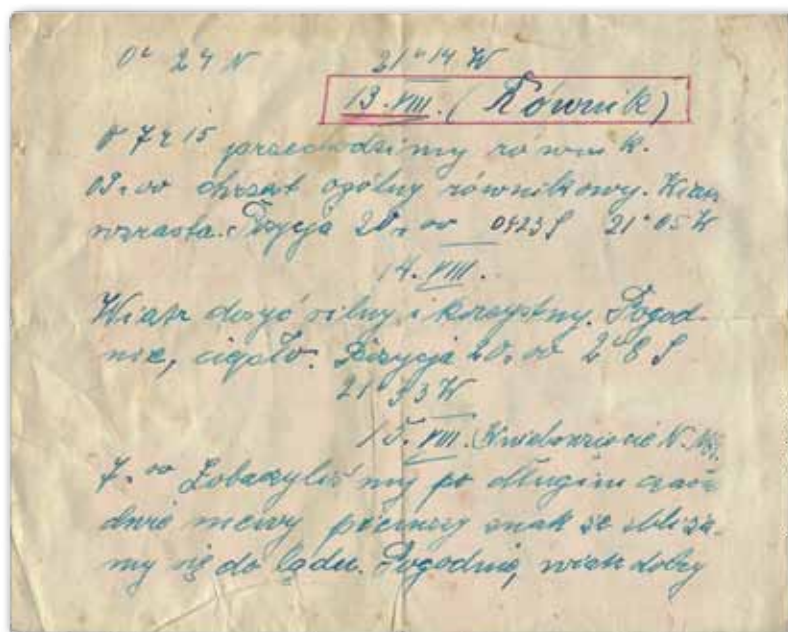 0° 24 N 21° 14 W
13. VIII. (Równik)
O 7 15 przechodzimy równik.
09.00 chrzest ogólny równikowy. Wiatr
wzrasta. Pozycja 20.00 0°23 S 21°05 W
14. VIII.
Wiatr dosyć silny i korzystny. Pogod-
nie, ciepło. Pozycja 20.00 2°8 S
21°33 W
15. VIII. (Wniebowzięcie N.M.P.
7.00 Zobaczyliśmy po długim czasie
dwie mewy pierwszy znak że zbliża-
my się do lądu. Pogodnie, wiatr dobry